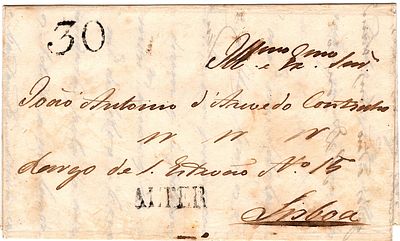 30
Illmo e Exmo Snr.
João Antonio d'Azevedo Contratr
n n n
Largo de S. Estevão No 15
ALTER
Lisboa